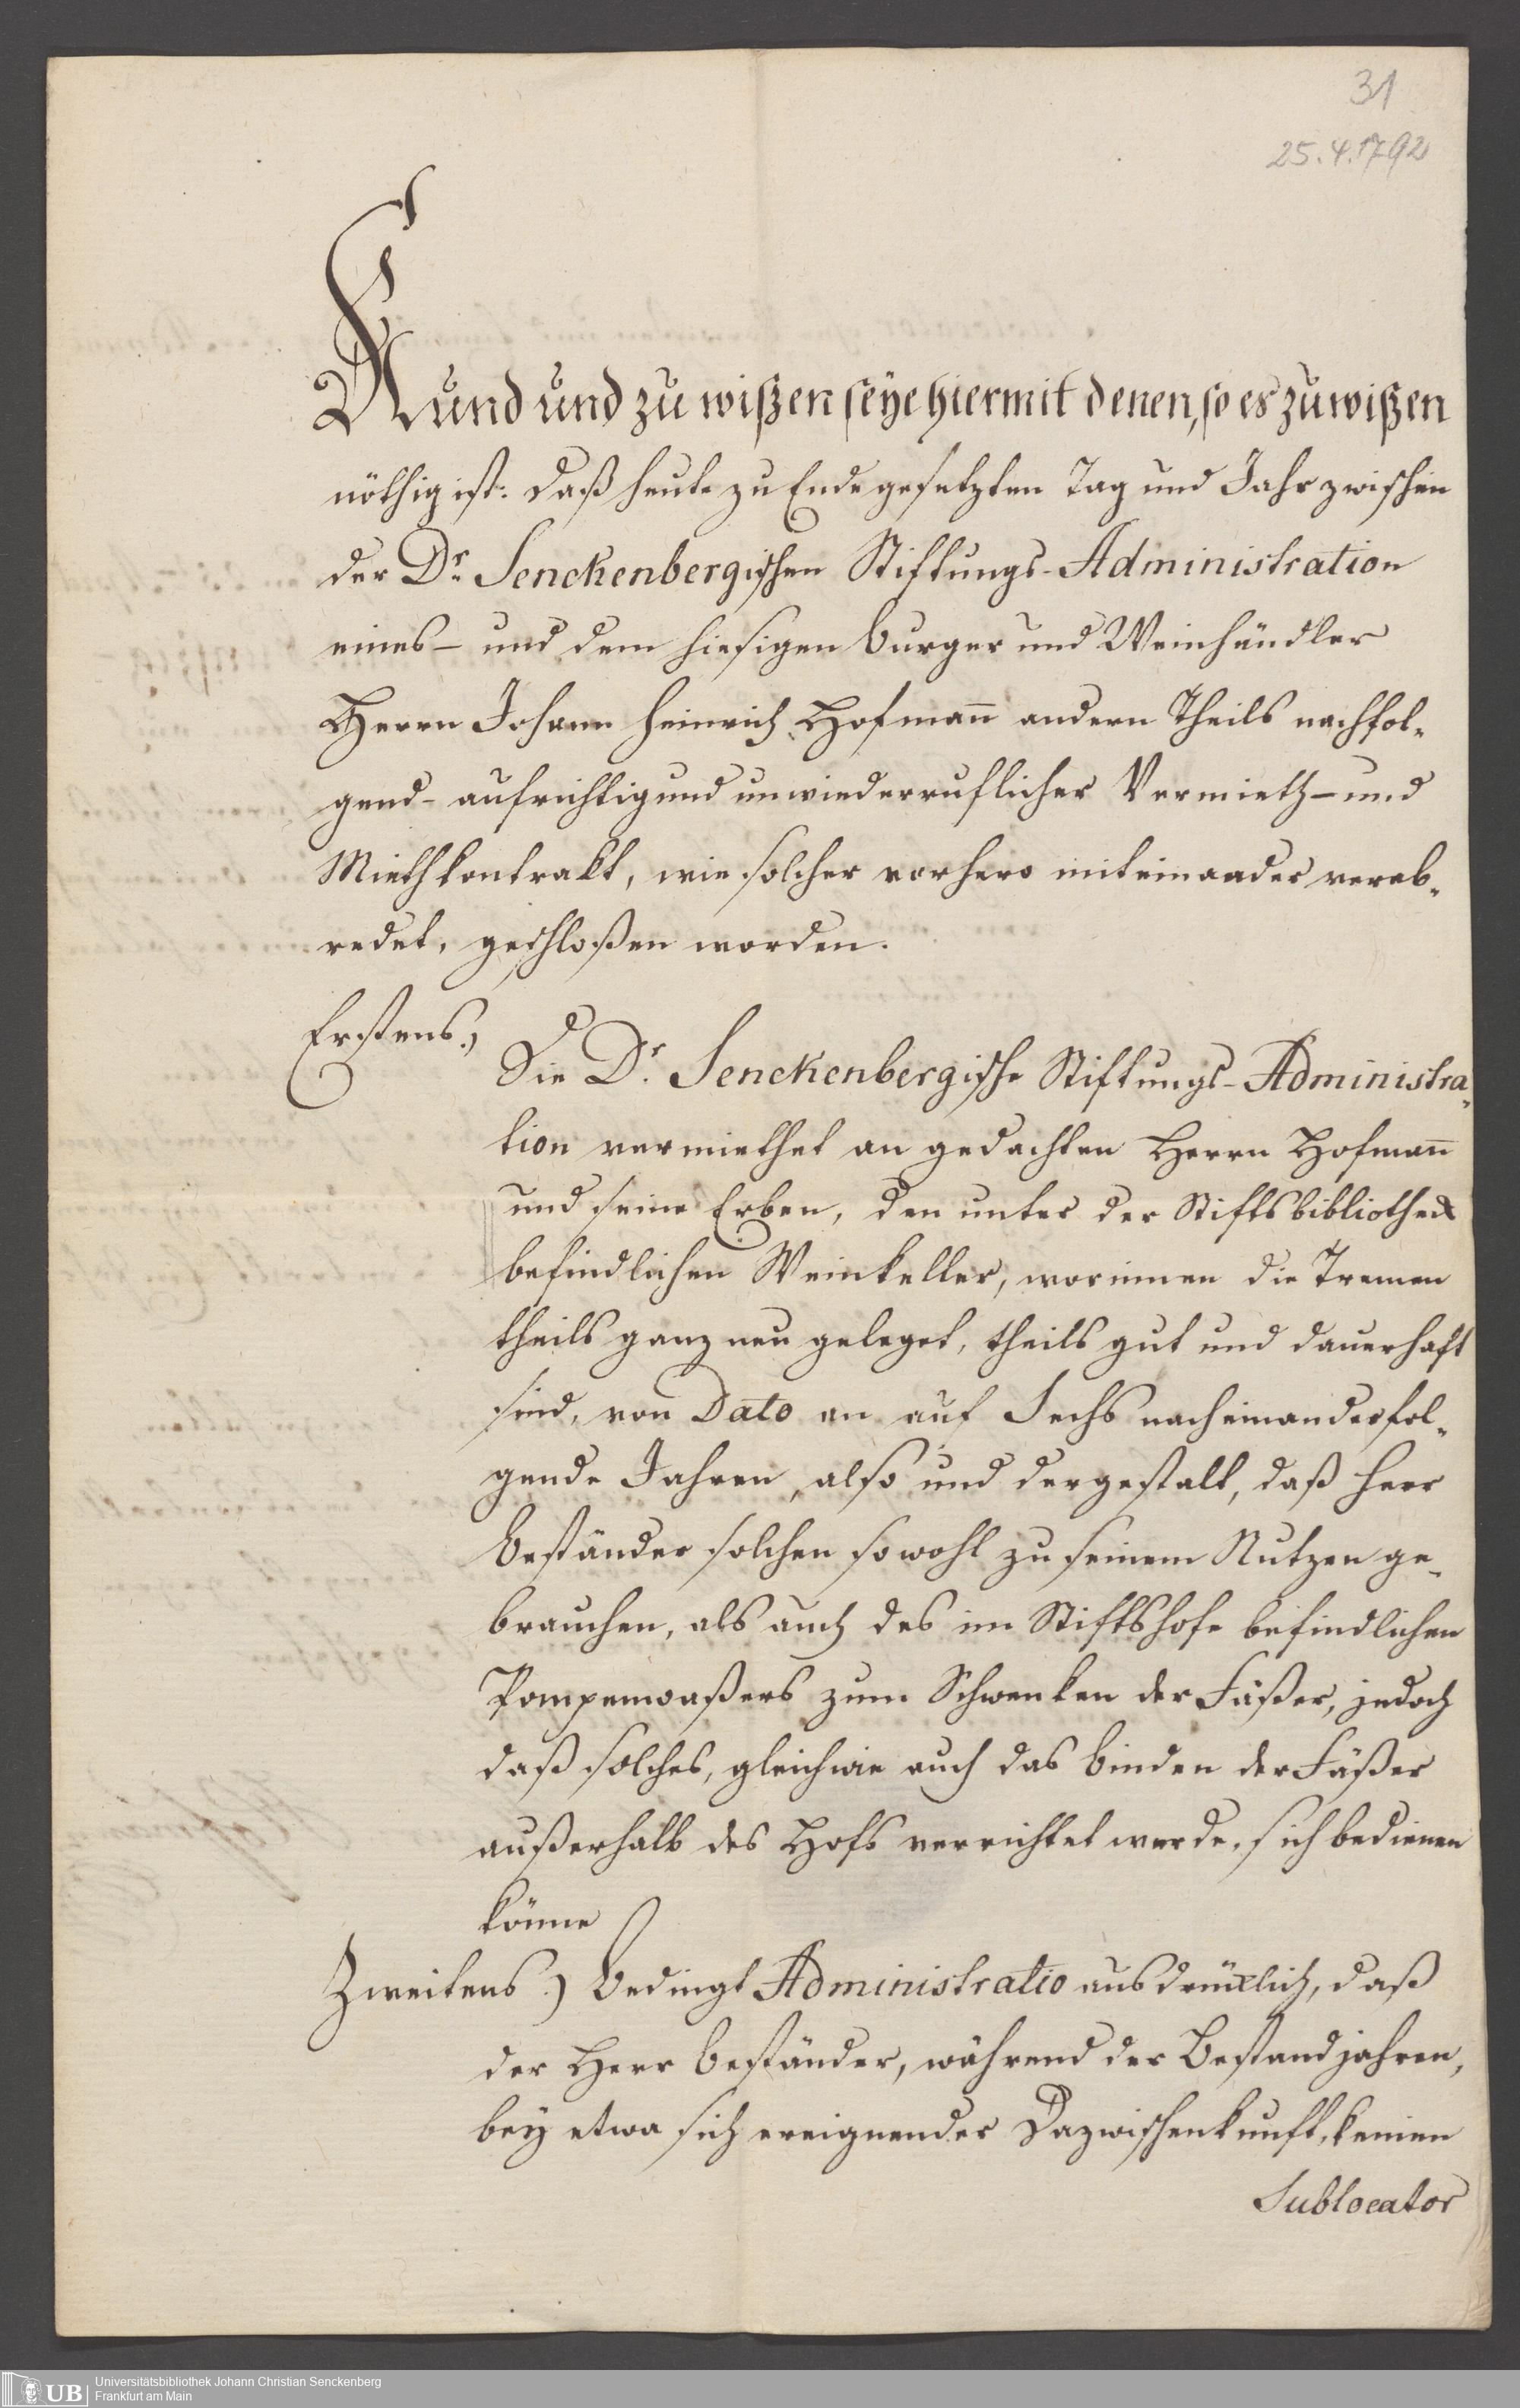 31
25.4.1792
Kund und zu wißen seÿe hiermit denen, so es zu wißen
nöthig ist: daß heute zu Ende gesetzten Tag und Jahr zwischen
der Dr. Senckenbergischen Stiftungs-Administration
eines- und dem hiesigen burger und Weinhändler
Herrn Johann Heinrich Hofman̅ andern Theils nachfol-
gend- aufrichtig und unwiederruflicher Vermieth- und
Miethkontrakt, wie solcher vorhero miteinander verab-
redet, geschloßen worden.
Erstens.)
Die Dr. Senckenbergische Stiftungs-Administra-
tion vermiethet an gedachten Herrn Hofman̅
und seine Erben, den unter der Stiftsbibliotheck
befindlichen Weinkeller, worinnen die Tremen
theils ganz neu geleget, theils gut und dauerhaft
sind, von Dato an auf Sechs nacheinanderfol-
gende Jahren, also und dergestalt, daß Herr
beständer solchen sowohl zu seinem Nutzen ge-
brauchen, als auch des im Stiftshofe befindlichen
Pompenwaßers zum Schwenken der Fäßer, jedoch
daß solches, gleichwie auch das binden der Fäßer
außerhalb des Hofs verrichtet werde, sich bedienen
könne
Zweitens.) bedingt Administratio ausdrücklich, daß
der Herr beständer, während der Bestandjahren,
beÿ etwa sich ereignender Dazwischenkunft, keinen
Sublocator
UB
Universitätsbibliothek Johann Christian Senckenberg
Frankfurt am Main